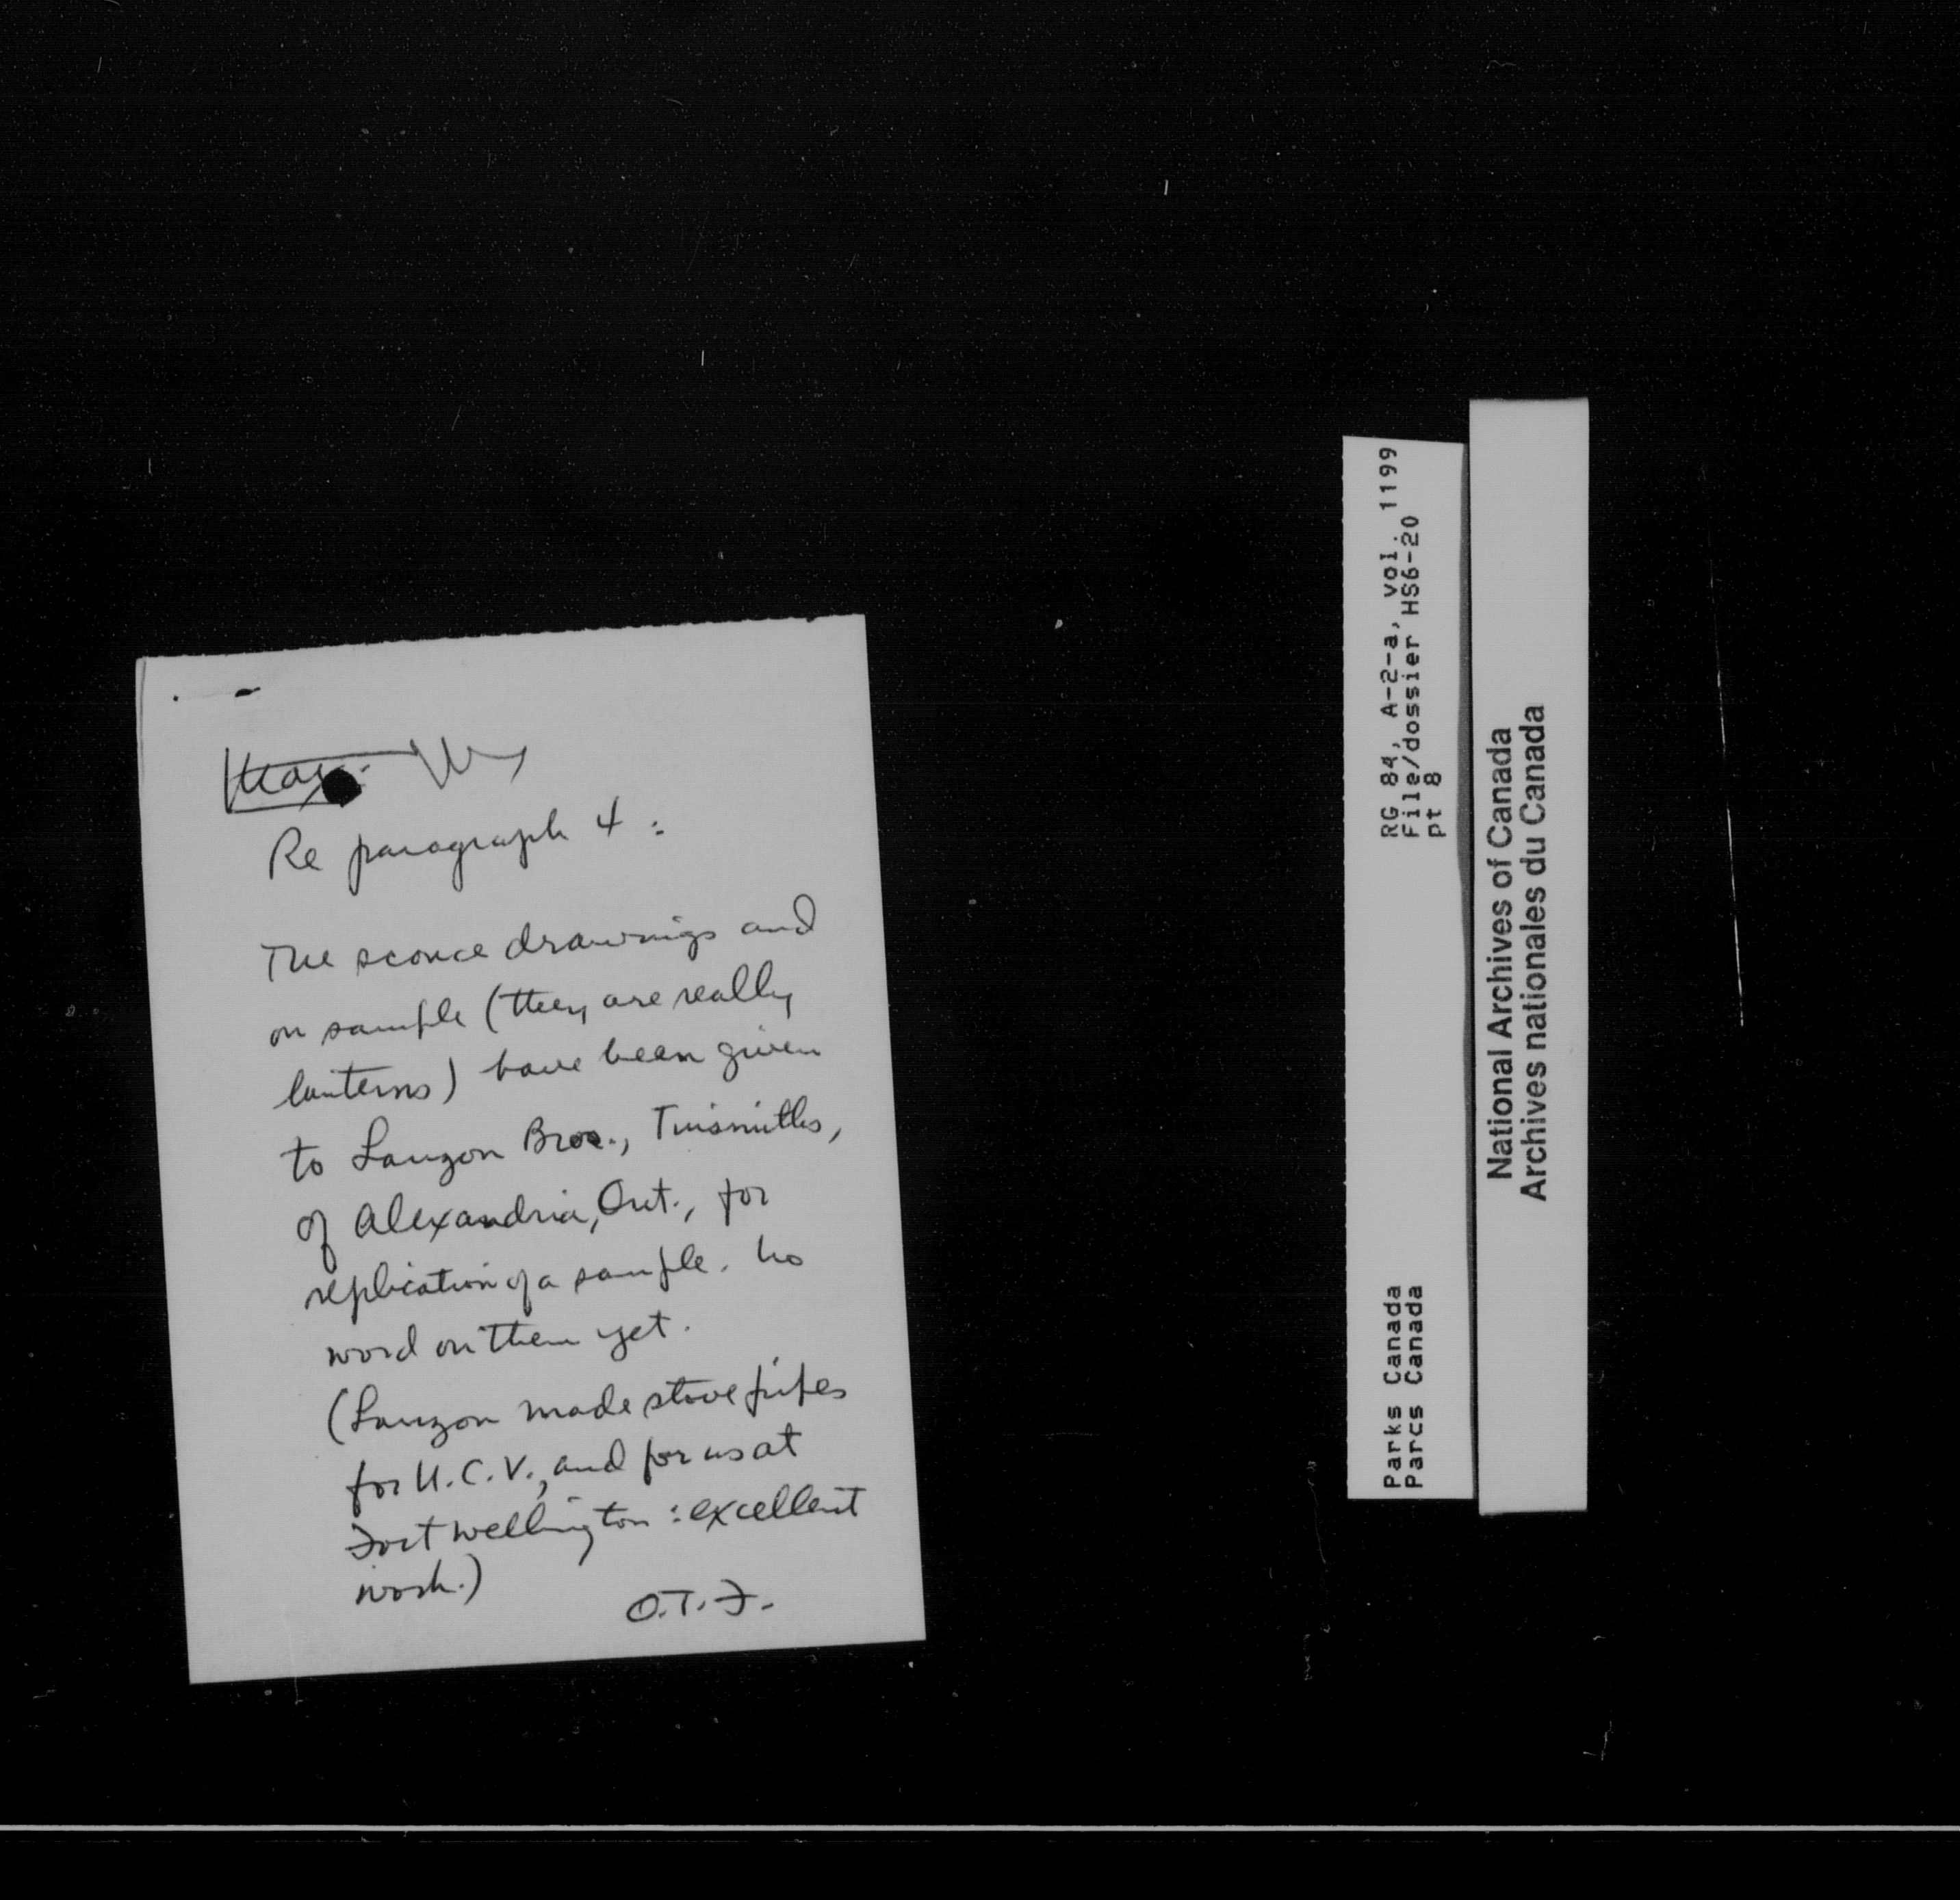 Re paragraph 4 :
The sconce drawings and
on sample (they are really
lanterns) have been given
to Lauzon Bros., Tinsmiths,
of Alexandria, Ont., for
replication of a sample. No
word on them yet.
(Lauzon made stove pipes
for U.C.V., and for us at
Fort Wellington : excellent
work.)
O.T.F.
RG 84, A-2-a, vol. 1199
File/dossier HS6-20
pt 8
Parks Canada
Parcs Canada
National Archives of Canada
Archives nationales du Canada